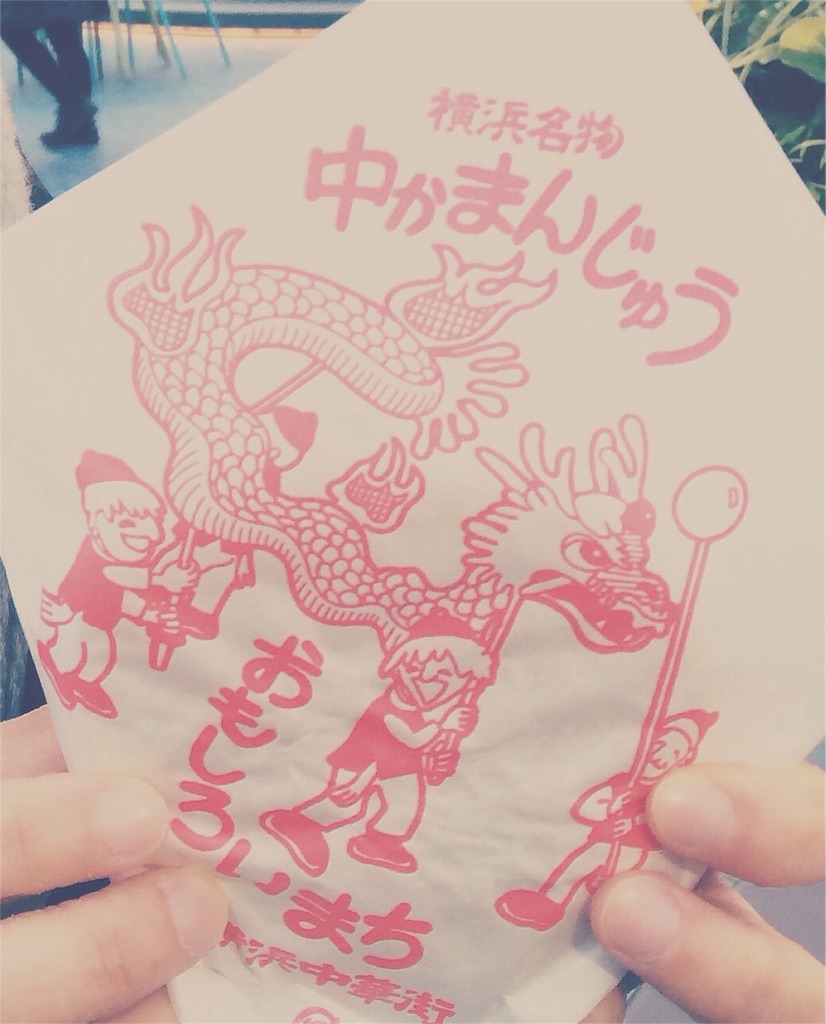 横浜名物
中かまんじゅう
おもしろいまち
横浜中華街